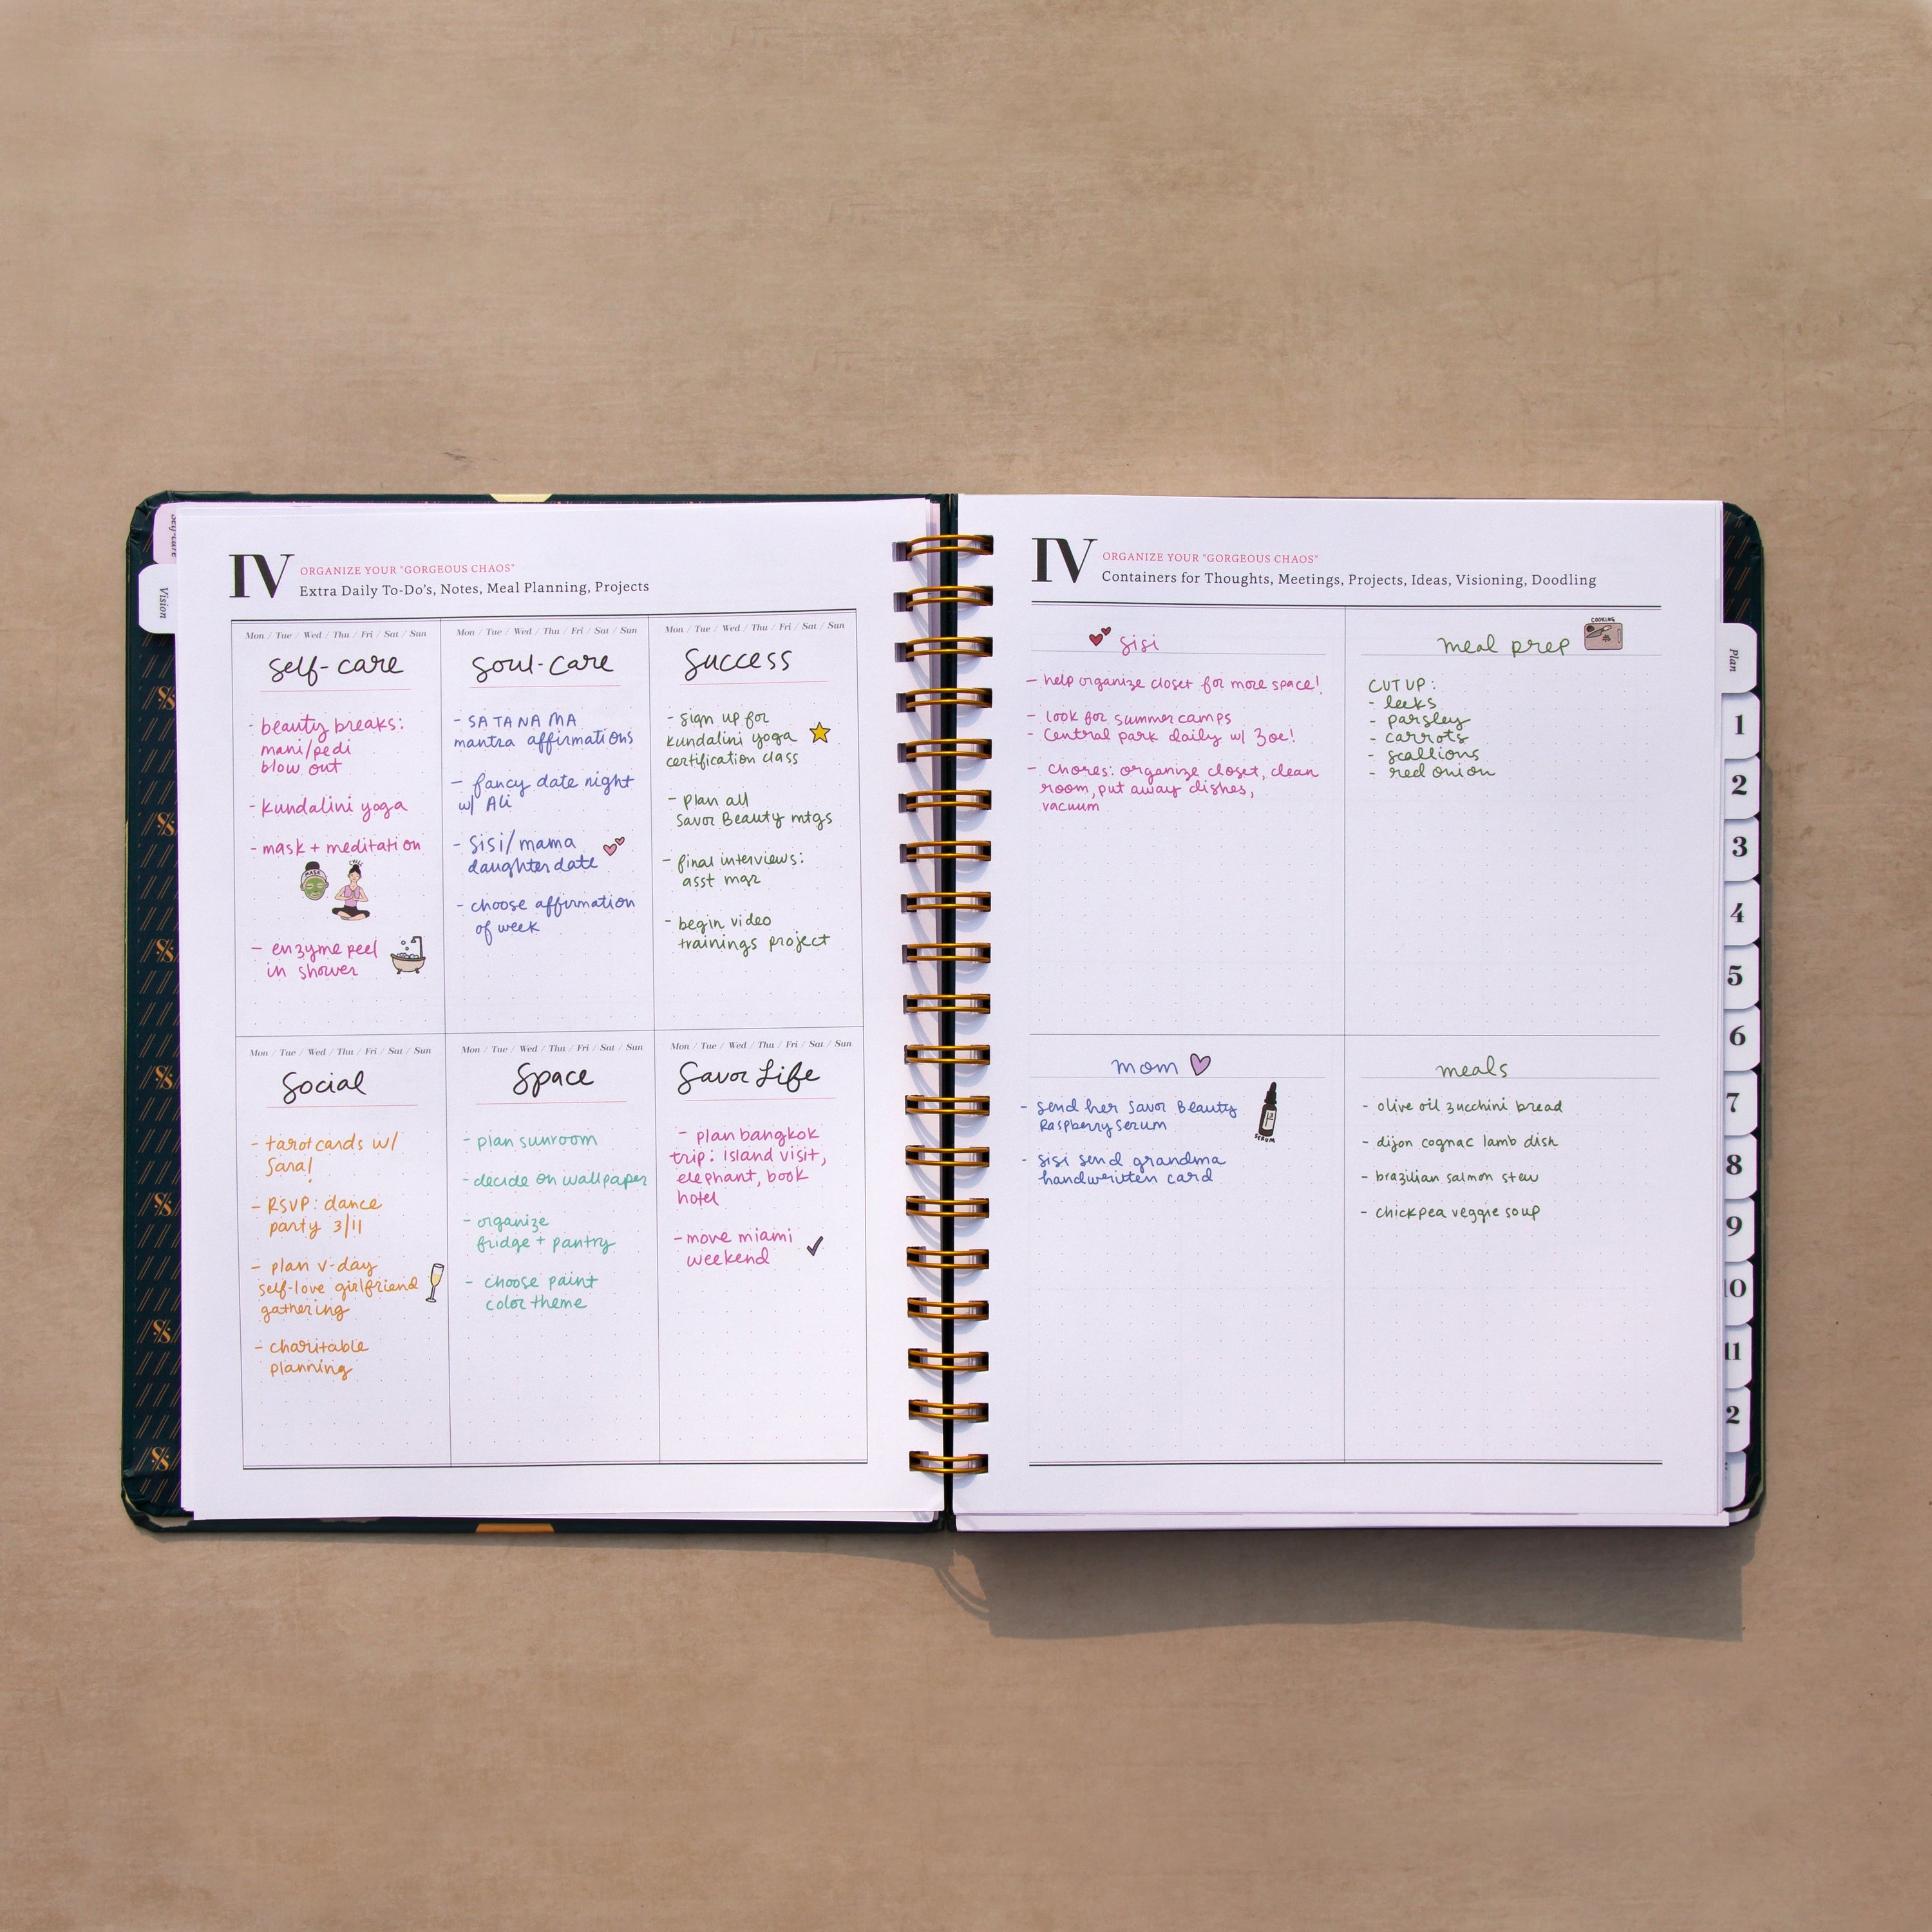 Self-care
Vision
IV
ORGANIZE YOUR "GORGEOUS CHAOS"
Extra Daily To-Do's, Notes, Meal Planning, Projects
Mon / Tue / Wed / Thu / Fri / Sat / Sun
self-care
- beauty breaks:
mani/pedi
blow out
- kundalini yoga
- mask + meditation
MASK
CHILL
- enzyme peel
in shower
Mon / Tue / Wed / Thu / Fri / Sat / Sun
soul-care
- SA TA NA MA
mantra affirmations
- fancy date night
w/ Ali
- Sisi/mama
daughter date
- choose affirmation
of week
Mon / Tue / Wed / Thu / Fri / Sat / Sun
success
- sign up for
kundalini yoga
certification class
- plan all
Savor Beauty mtgs
- final interviews:
asst mgr
- begin video
trainings project
Mon / Tue / Wed / Thu / Fri / Sat / Sun
Social
- tarot cards w/
Sara!
- RSVP: dance
party 3/11
- plan v-day
self-love girlfriend
gathering
- charitable
planning
Mon / Tue / Wed / Thu / Fri / Sat / Sun
Space
- plan sunroom
- decide on wallpaper
- organize
fridge + pantry
- choose paint
color theme
Mon / Tue / Wed / Thu / Fri / Sat / Sun
Savor Life
- plan bangkok
trip: island visit,
elephant, book
hotel
- move miami
weekend
IV
ORGANIZE YOUR "GORGEOUS CHAOS"
Containers for Thoughts, Meetings, Projects, Ideas, Visioning, Doodling
sisi
- help organize closet for more space!
- look for summer camps
- Central park daily w/ Zoe!
- chores: organize closet, clean
room, put away dishes,
vacuum
meal prep
COOKING
CUT UP:
- leeks
- parsley
- carrots
- scallions
- red onion
mom
- send her Savor Beauty
Raspberry serum
SERUM
- sisi send grandma
handwritten card
meals
- olive oil zucchini bread
- dijon cognac lamb dish
- brazilian salmon stew
- chickpea veggie soup
Plan
1
2
3
4
5
6
7
8
9
10
11
2